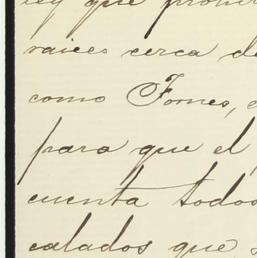 ley que prohi
raices cerca de
como Fornes,
para que el
cuenta todos
calados que